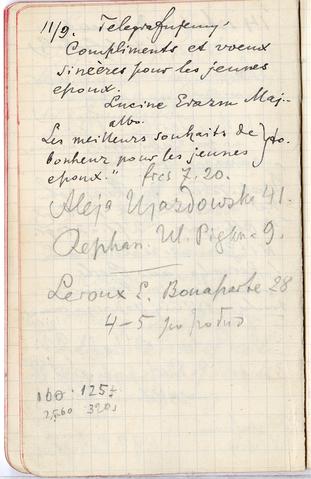 11/9. Telegrafujemy:
Compliments et voeux
sincères pour les jeunes
époux.
Lucine Erazm Maj-
albo.
Les meilleurs souhaits de
bonheur pour les jeunes
époux."
7.20.
Aleja Ujazdowska 41.
Ul. Piękna 9.
Leroux E. Bonaparte 28
4-5 po połud
160 . 125